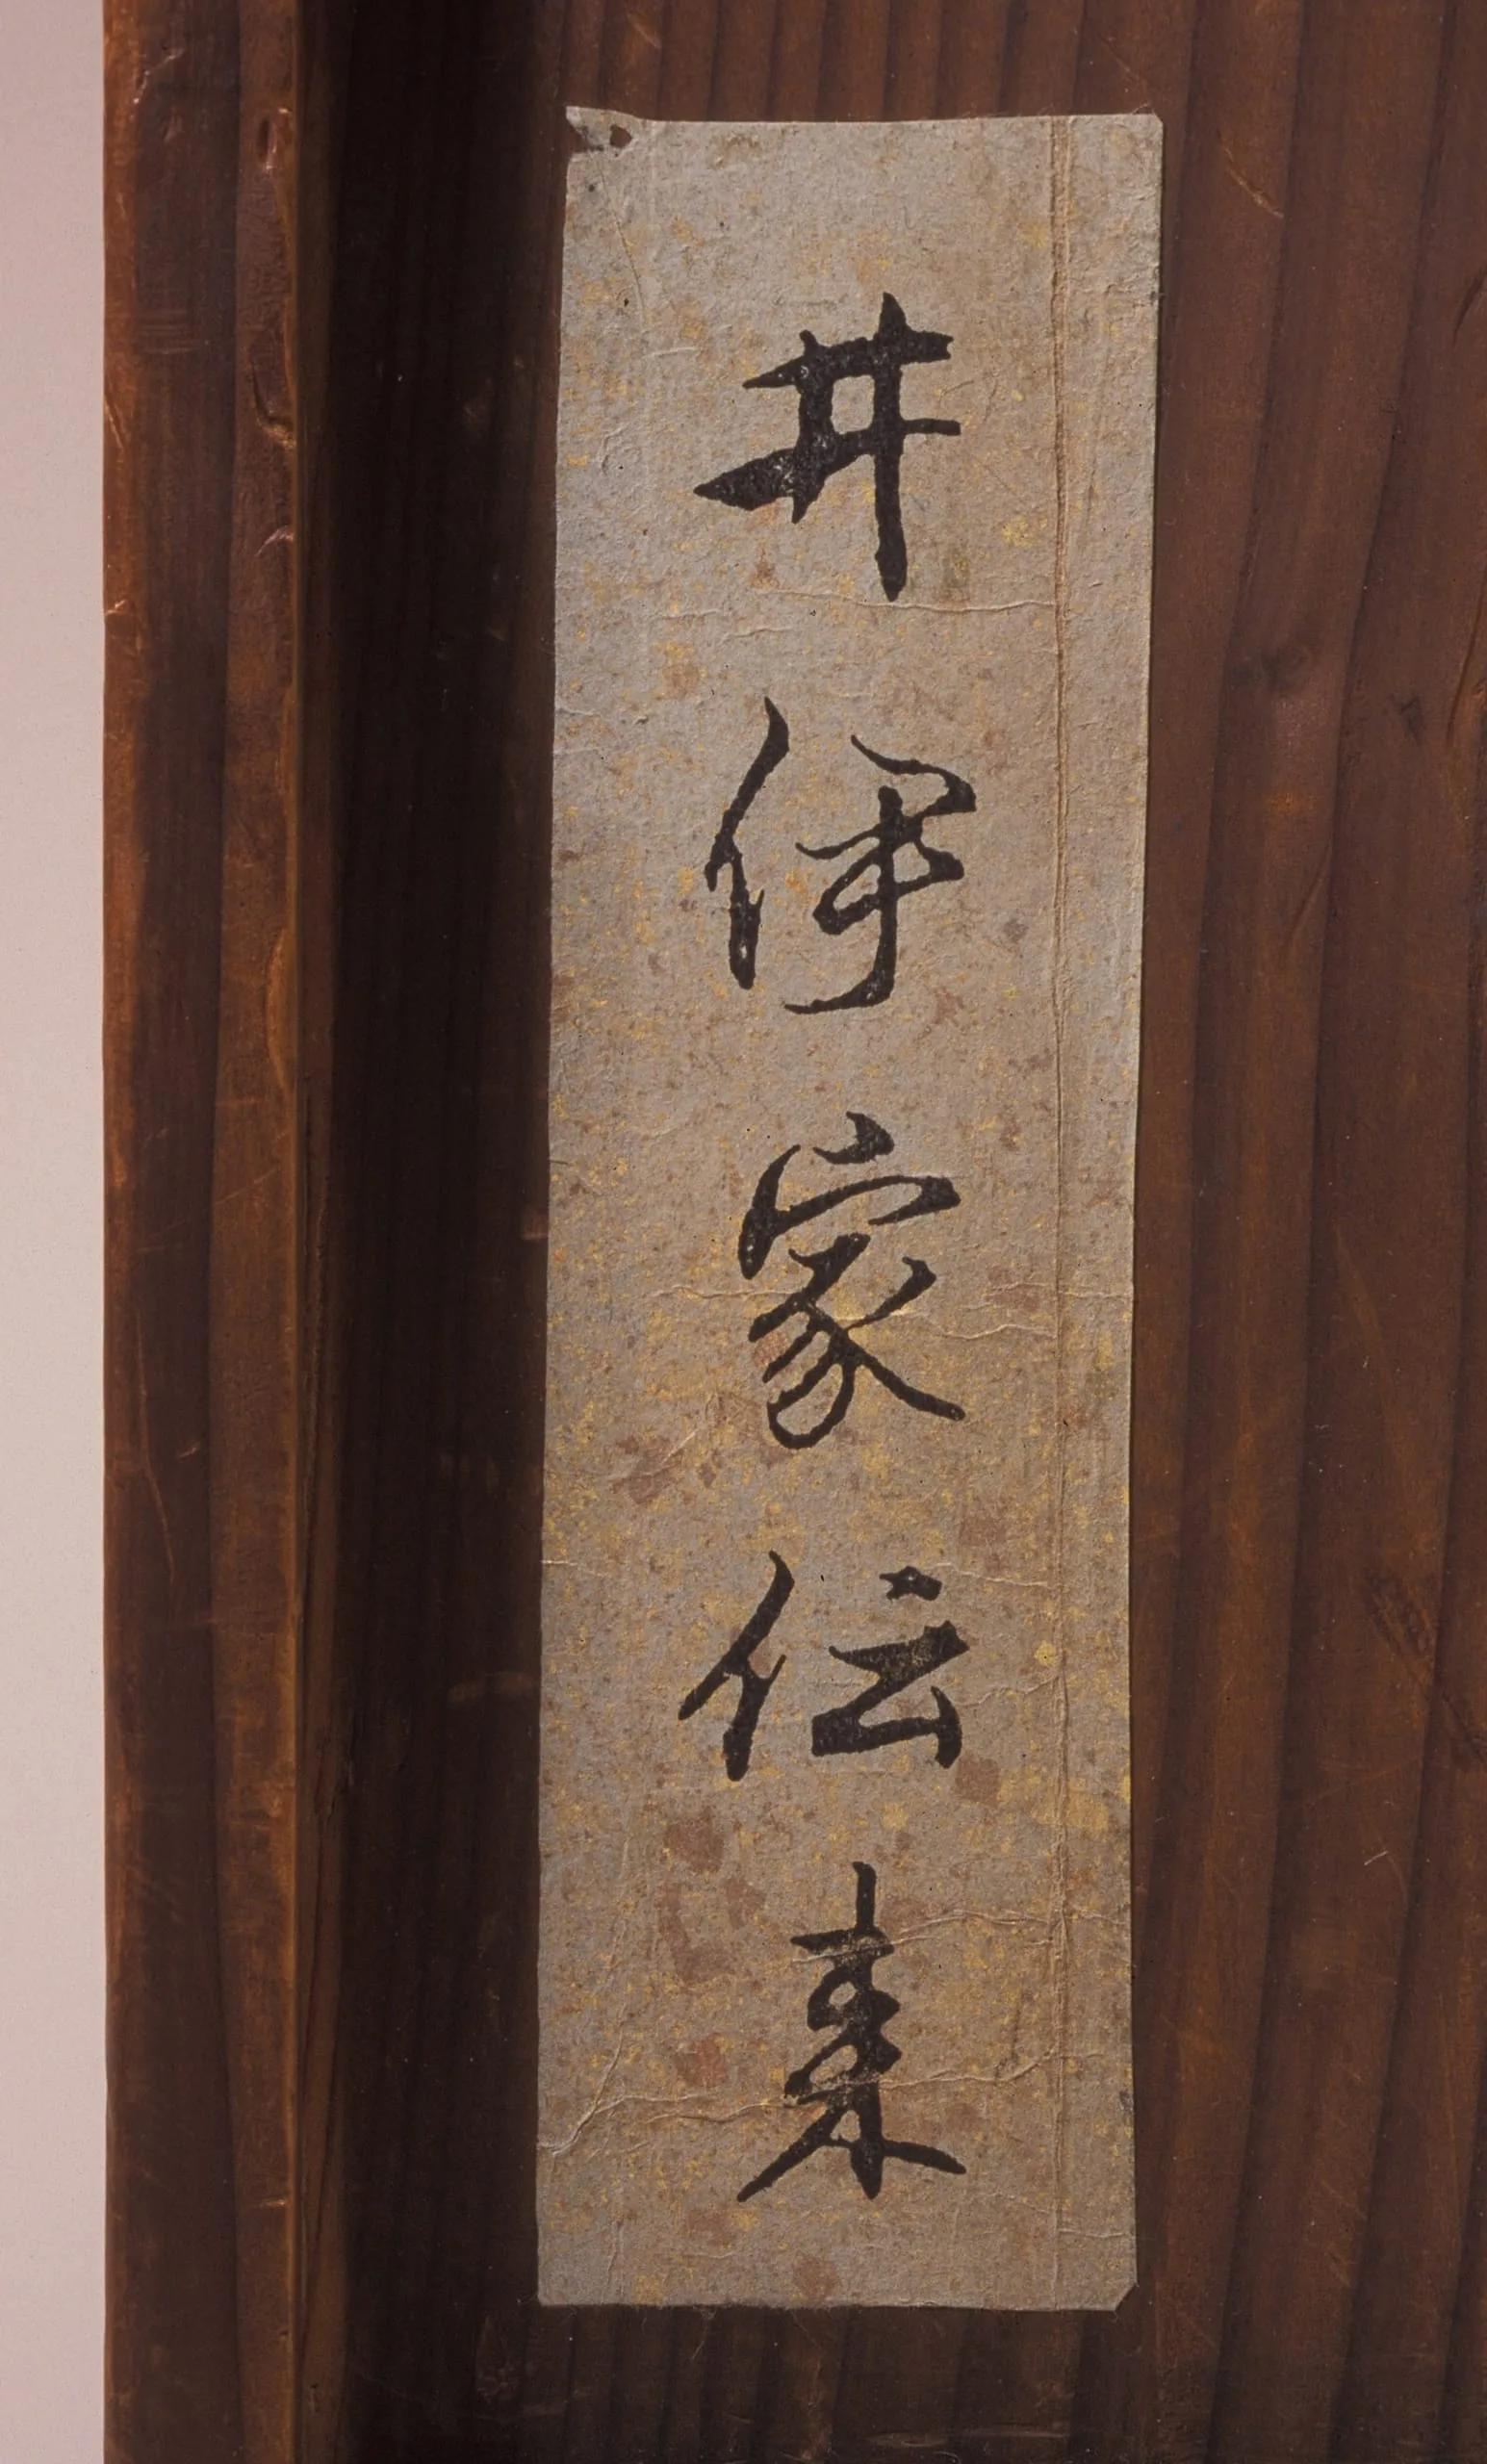 井伊家伝来